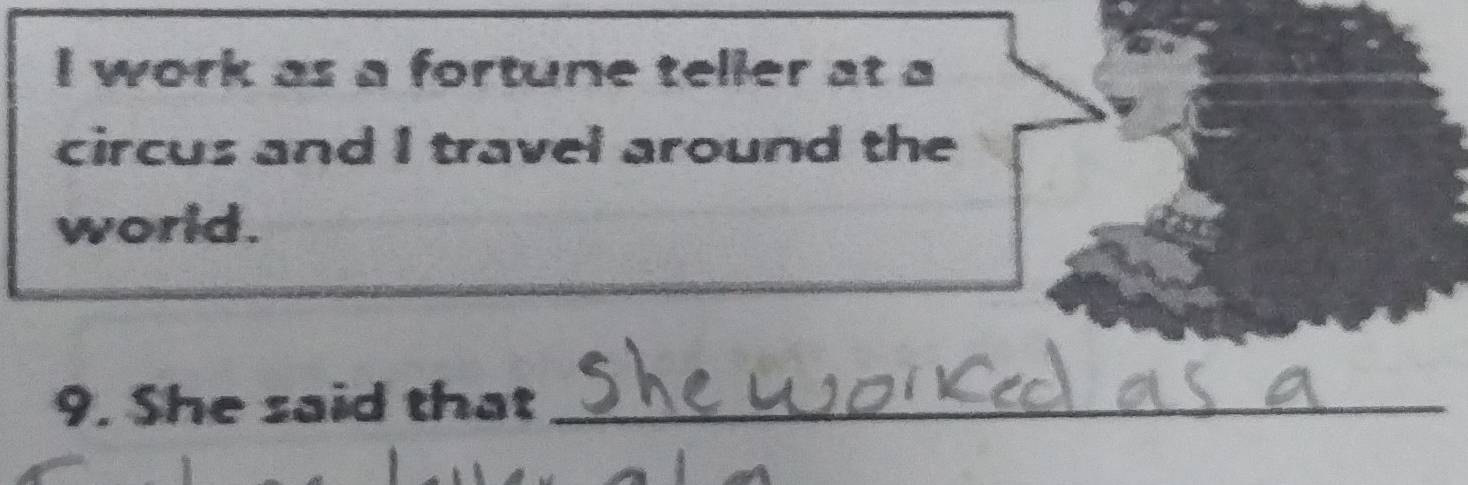 I work as a fortune teller at a
circus and I travel around the
world.
9. She said that she worked as a